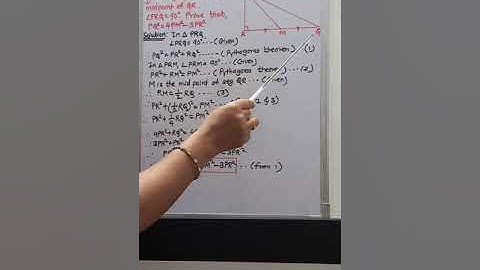 midpoint of QR
∠PRQ=90°. Prove that,
PQ²=4PM²-3PR²
R M Q
Solution: In △ PRQ,
∠PRQ=90°...(Given)
∴ PQ²=PR²+RQ²...(Pythagoras theorem)...(1)
In △PRM, ∠PRM=90°...(Given)
∴ PR²+RM²=PM²...(Pythagoras theorem)...(2)
M is the midpoint of seg QR...(Given)
∴ RM=½RQ ....(3)
∴ PR²+(½RQ)²=PM² 2 & 3)
∴ PR²+¼RQ²=PM²
∴ 4PR²+RQ²=
∴ 3PR²+PR²
-3PR²
M²-3PR² ...(from 1)